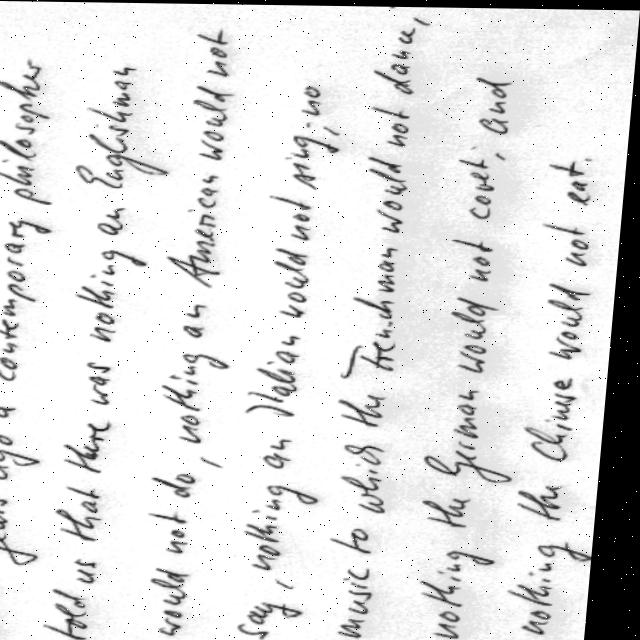 years ago a contemporary philosopher
told us that there was nothing an Englishman
would not do, nothing an American would not
say, nothing an Italian would not sing, no
music to which the Frenchman would not dance,
nothing the German would not covet, and
nothing the Chinese would not eat.